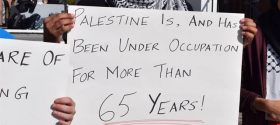 Palestine Is, And Has
Been Under Occupation
For More Than
65 Years!
are of
ng